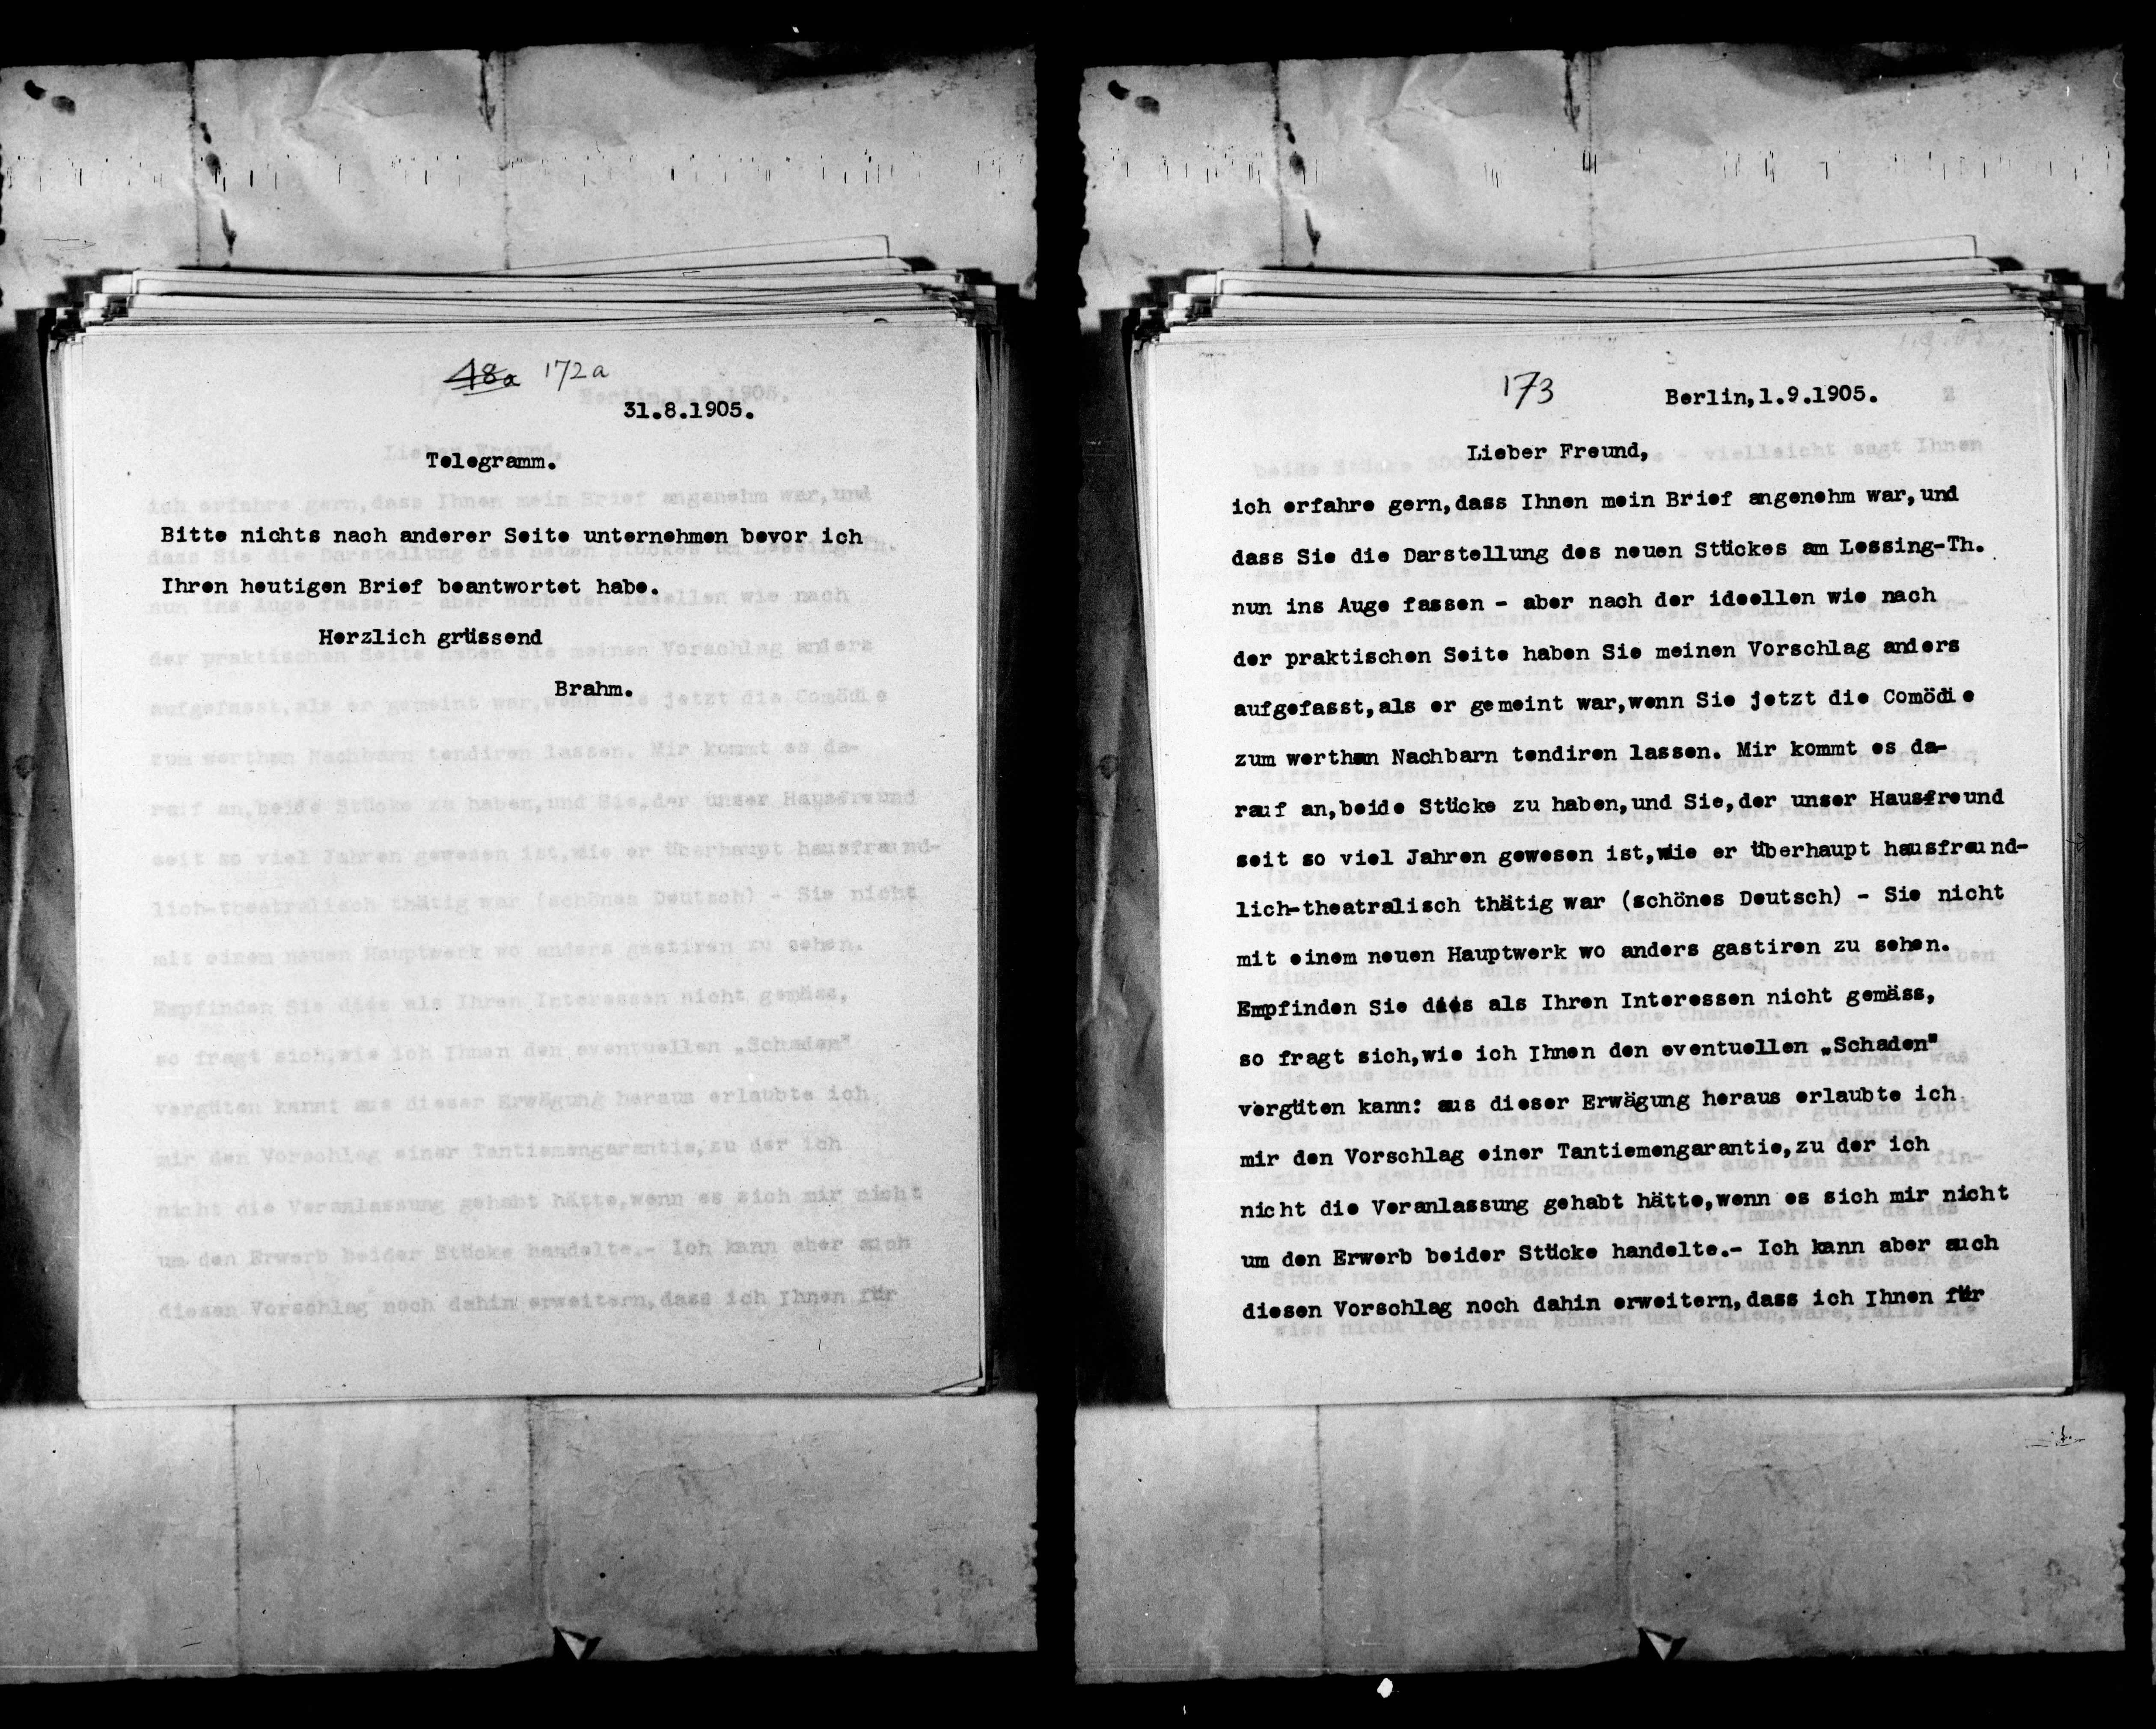 48a 172a
31.8.1905.
Telegramm.
Bitte nichts nach anderer Seite unternehmen bevor ich
Ihren heutigen Brief beantwortet habe.
Herzlich grüssend
Brahm.
173
Berlin,1.9.1905.
Lieber Freund,
ich erfahre gern,dass Ihnen mein Brief angenehm war,und
dass Sie die Darstellung des neuen Stückes am Lessing-Th.
nun ins Auge fassen - aber nach der ideellen wie nach
der praktischen Seite haben Sie meinen Vorschlag anders
aufgefasst,als er gemeint war,wenn Sie jetzt die Comödie
zum werthen Nachbarn tendiren lassen. Mir kommt es da-
rauf an,beide Stücke zu haben,und Sie,der unser Hausfreund
seit so viel Jahren gewesen ist,wie er überhaupt hausfreund-
lich-theatralisch thätig war (schönes Deutsch) - Sie nicht
mit einem neuen Hauptwerk wo anders gastiren zu sehen.
Empfinden Sie dies als Ihren Interessen nicht gemäss,
so fragt sich,wie ich Ihnen den eventuellen „Schaden"
vergüten kann: aus dieser Erwägung heraus erlaubte ich
mir den Vorschlag einer Tantiemengarantie,zu der ich
nicht die Veranlassung gehabt hätte,wenn es sich mir nicht
um den Erwerb beider Stücke handelte.- Ich kann aber auch
diesen Vorschlag noch dahin erweitern,dass ich Ihnen für